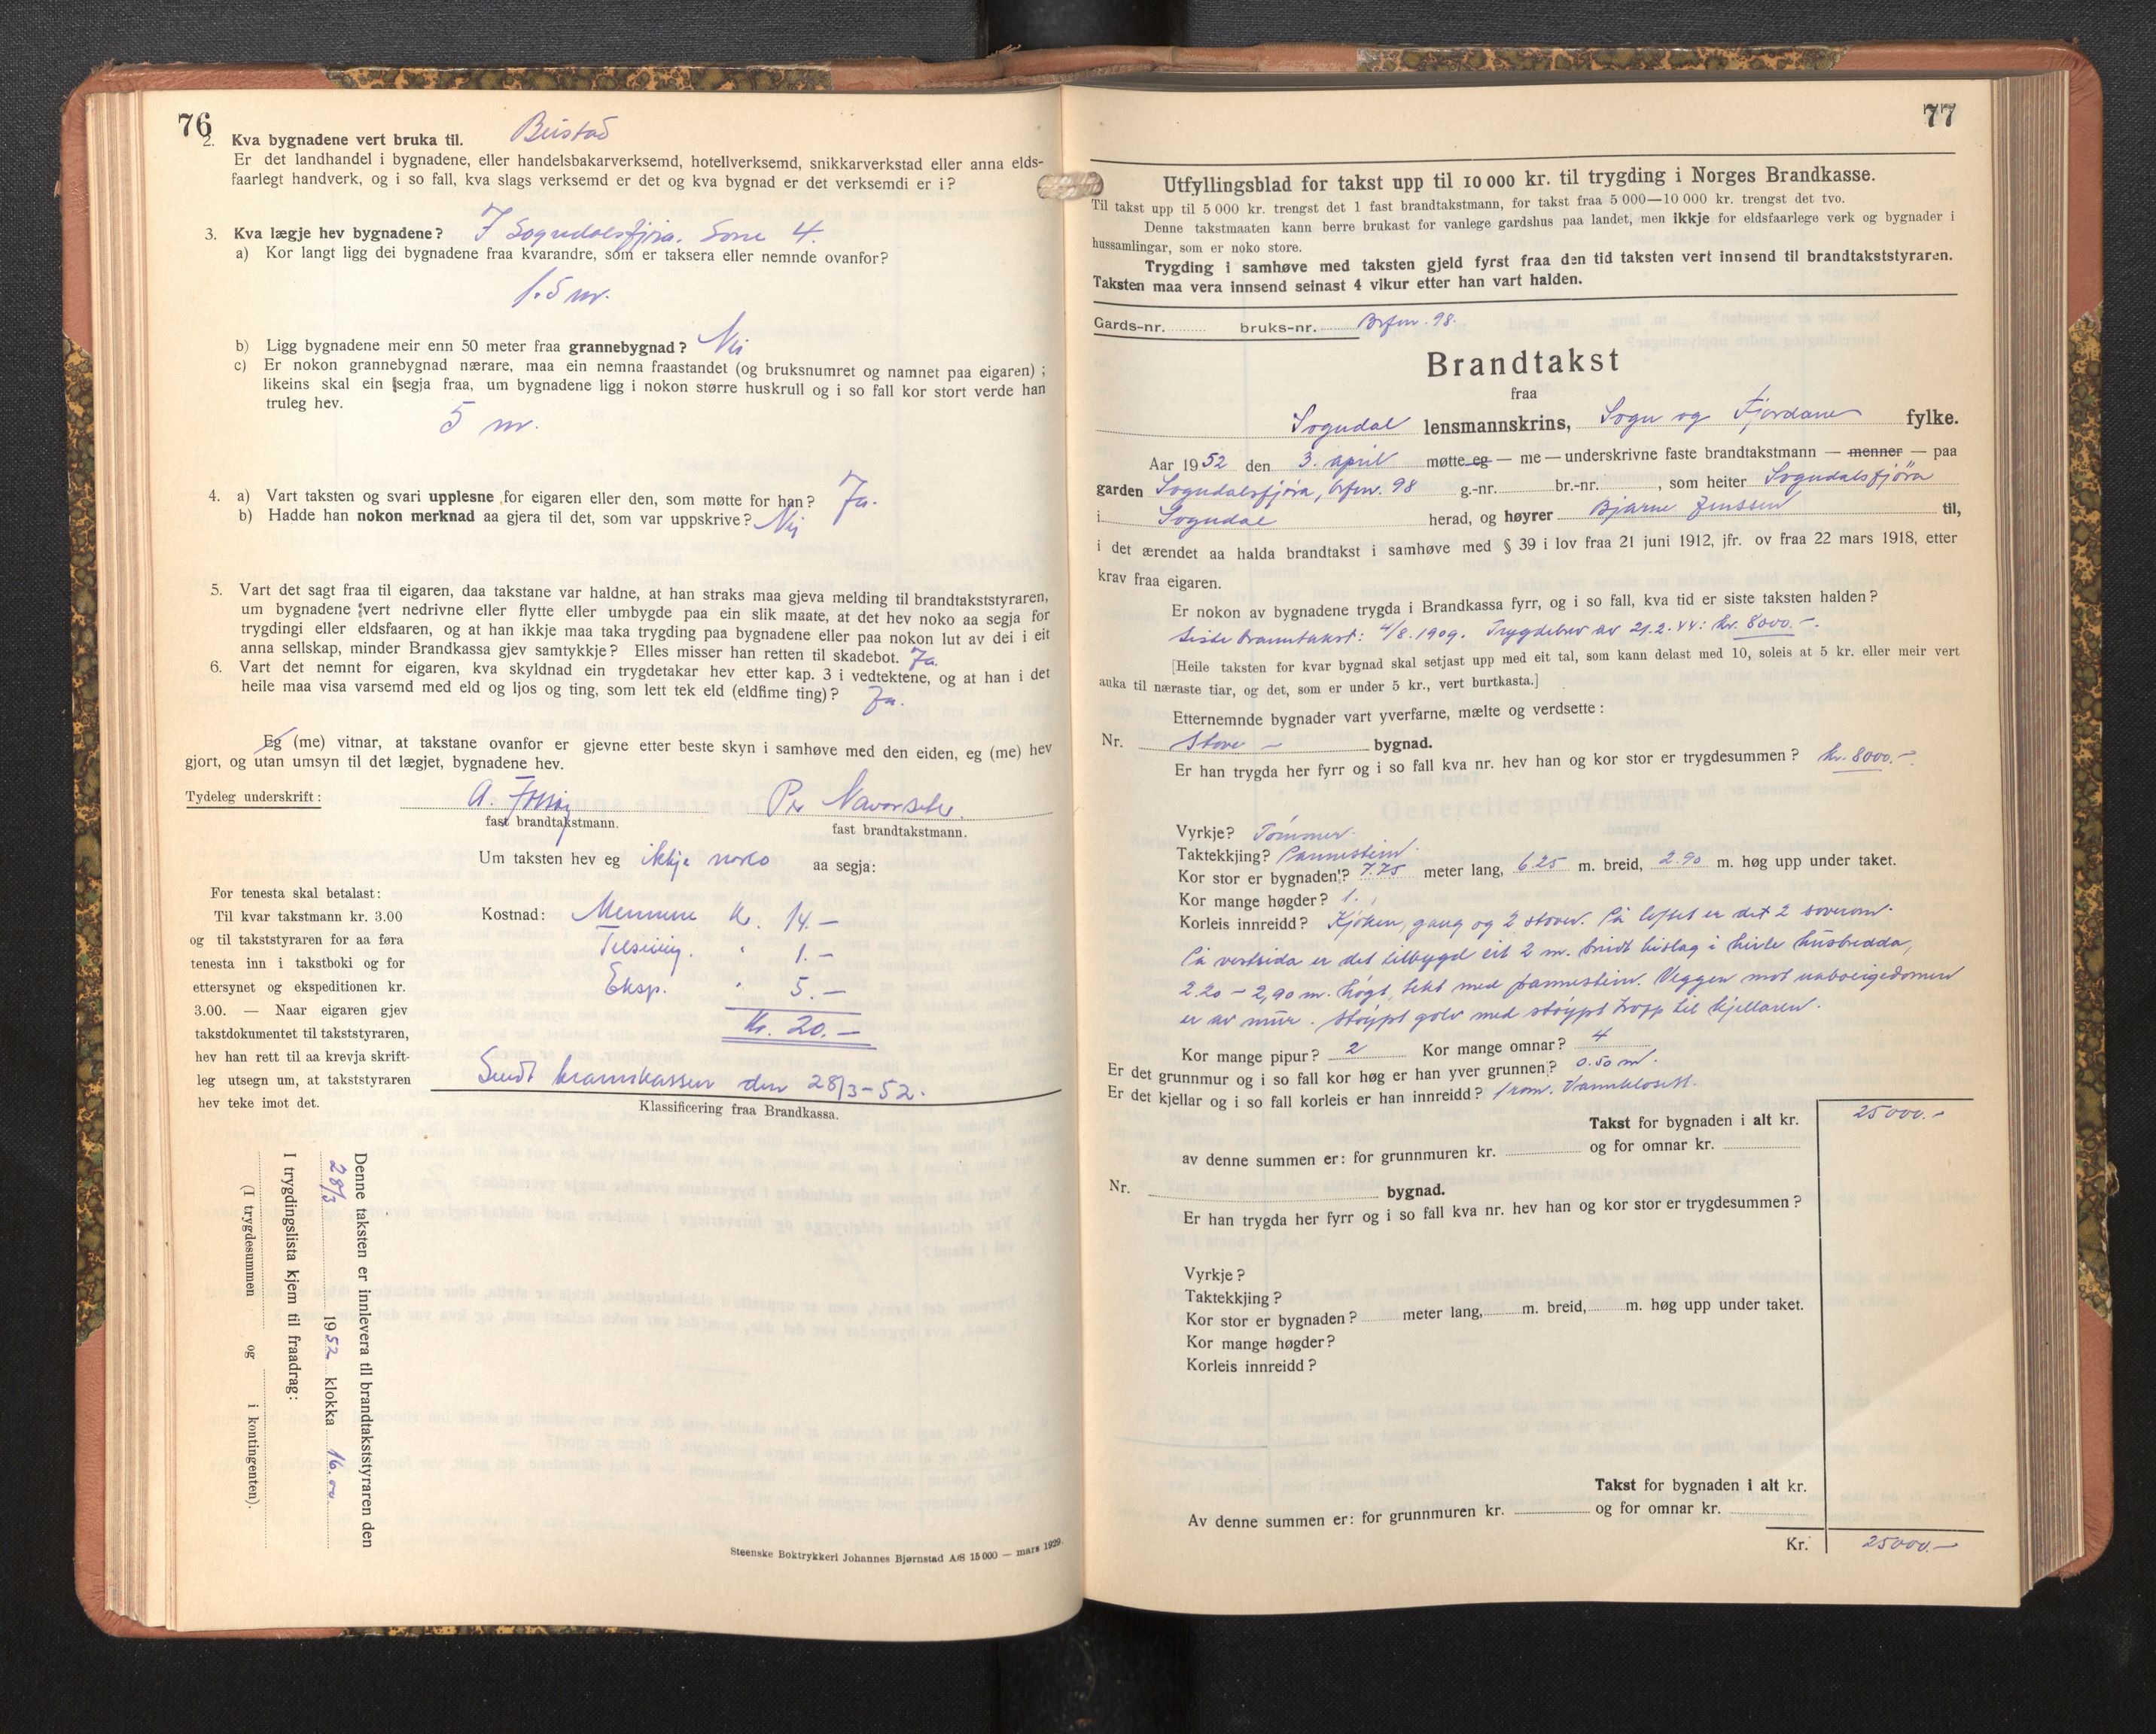 76
2. Kva bygnadene vert bruka til. Bustad
Er det landhandel i bygnadene, eller handelsbakarverksemd, hotellverksemd, snikkarverkstad eller anna elds-
faarlegt handverk, og i so fall, kva slags verksemd er det og kva bygnad er det verksemdi er i?
3. Kva lægje hev bygnadene? I Sogndalsfjøra. Sone 4.
a) Kor langt ligg dei bygnadene fraa kvarandre, som er taksera eller nemnde ovanfor?
1.5 m.
b) Ligg bygnadene meir enn 50 meter fraa grannebygnad? Nei
c) Er nokon grannebygnad nærare, maa ein nemna fraastandet (og bruksnumret og namnet paa eigaren) ;
likeins skal ein segja fraa, um bygnadene ligg i nokon større huskrull og i so fall kor stort verde han
truleg hev.
5 m.
4. a) Vart taksten og svari upplesne for eigaren eller den, som møtte for han? Ja.
b) Hadde han nokon merknad aa gjera til det, som var uppskrive? Nei
5. Vart det sagt fraa til eigaren, daa takstane var haldne, at han straks maa gjeva melding til brandtakststyraren,
um bygnadene vert nedrivne eller flytte eller umbygde paa ein slik maate, at det hev noko aa segja for
trygdingi eller eldsfaaren, og at han ikkje maa taka trygding paa bygnadene eller paa nokon lut av dei i eit
anna sellskap, minder Brandkassa gjev samtykkje? Elles misser han retten til skadebot. Ja.
6. Vart det nemnt for eigaren, kva skyldnad ein trygdetakar hev etter kap. 3 i vedtektene, og at han i det
heile maa visa varsemd med eld og ljos og ting, som lett tek eld (eldfime ting)? Ja.
Eg (me) vitnar, at takstane ovanfor er gjevne etter beste skyn i samhøve med den eiden, eg (me) hev
gjort, og utan umsyn til det lægjet, bygnadene hev.
Tydeleg underskrift: A. Per
fast brandtakstmann. fast brandtakstmann.
Um taksten hev eg ikkje noko aa segja:
For tenesta skal betalast:
Til kvar takstmann kr. 3.00
og til takststyraren for aa føra
tenesta inn i takstboki og for
ettersynet og ekspeditionen kr.
3.00. — Naar eigaren gjev
takstdokumentet til takststyraren,
hev han rett til aa krevja skrift-
leg utsegn um, at takststyraren
hev teke imot det.
Kostnad: Mennene kr. 14.—
" 1.—
Eksp. " 5.—
Kr. 20.—
Sendt brannkassen den 28/3-52.
Klassificering fraa Brandkassa.
Denne taksten er innlevera til brandtakststyraren den
28/3 1952 klokka 16.00.
I trygdingslista kjem til fraadrag:
(I trygdesummen og i kontingenten).
Steenske Boktrykkeri Johannes Bjørnstad A/S 15 000 — mars 1929.
77
Utfyllingsblad for takst upp til 10 000 kr. til trygding i Norges Brandkasse.
Til takst upp til 5 000 kr. trengst det 1 fast brandtakstmann, for takst fraa 5 000—10 000 kr. trengst det tvo.
Denne takstmaaten kann berre brukast for vanlege gardshus paa landet, men ikkje for eldsfaarlege verk og bygnader i
hussamlingar, som er noko store.
Trygding i samhøve med taksten gjeld fyrst fraa den tid taksten vert innsend til brandtakststyraren.
Taksten maa vera innsend seinast 4 vikur etter han vart halden.
Gards-nr. bruks-nr. Brfnr. 98.
Brandtakst
fraa
Sogndal lensmannskrins, Sogn og Fjordane fylke.
Aar 1952 den 3. april møtte eg — me — underskrivne faste brandtakstmann — menner — paa
garden Sogndalsfjøra, brfnr. 98 g.-nr. br.-nr. , som heiter Sogndalsfjøra
i Sogndal herad, og høyrer Bjarne Jenssen til,
i det ærendet aa halda brandtakst i samhøve med § 39 i lov fraa 21 juni 1912, jfr. ov fraa 22 mars 1918, etter
krav fraa eigaren.
Er nokon av bygnadene trygda i Brandkassa fyrr, og i so fall, kva tid er siste taksten halden?
Siste branntakst: 4/8.1909. Trygdebrev av 21.2.44: kr. 8000.-.
[Heile taksten for kvar bygnad skal setjast upp med eit tal, som kann delast med 10, soleis at 5 kr. eller meir vert
auka til næraste tiar, og det, som er under 5 kr., vert burtkasta.]
Etternemnde bygnader vart yverfarne, mælte og verdsette :
Nr. Stove — bygnad.
Er han trygda her fyrr og i so fall kva nr. hev han og kor stor er trygdesummen? kr. 8000.-
Vyrkje? Tømmer.
Taktekkjing? Pannestein.
Kor stor er bygnaden? 7.75 meter lang, 6.25 m. breid, 2.90 m. høg upp under taket.
Kor mange høgder? 1.
Korleis innreidd? Kjøken, gang og 2 stover. På loftet er det 2 soverom.
På vestsida er det tilbygd eit 2 m. breidt bislag i heile husbredda,
2.20 — 2,90 m. høgt, tekt med pannestein. Veggen mot naboeigedomen
er av mur. Støypt golv med støypt tropp til kjellaren.
Kor mange pipur? 2 Kor mange omnar? 4
Er det grunnmur og i so fall kor høg er han yver grunnen? 0.50 m.
Er det kjellar og i so fall korleis er han innreidd? 1 rom. Vannklosett.
Takst for bygnaden i alt kr. 25000.-
av denne summen er: for grunnmuren kr. og for omnar kr.
Nr. bygnad.
Er han trygda her fyrr og i so fall kva nr. hev han og kor stor er trygdesummen?
Vyrkje?
Taktekkjing?
Kor stor er bygnaden? meter lang, m. breid, m. høg upp under taket.
Kor mange høgder?
Korleis innreidd?
Takst for bygnaden i alt kr.
Av denne summen er: for grunnmuren kr. og for omnar kr.
Kr. 25000.-